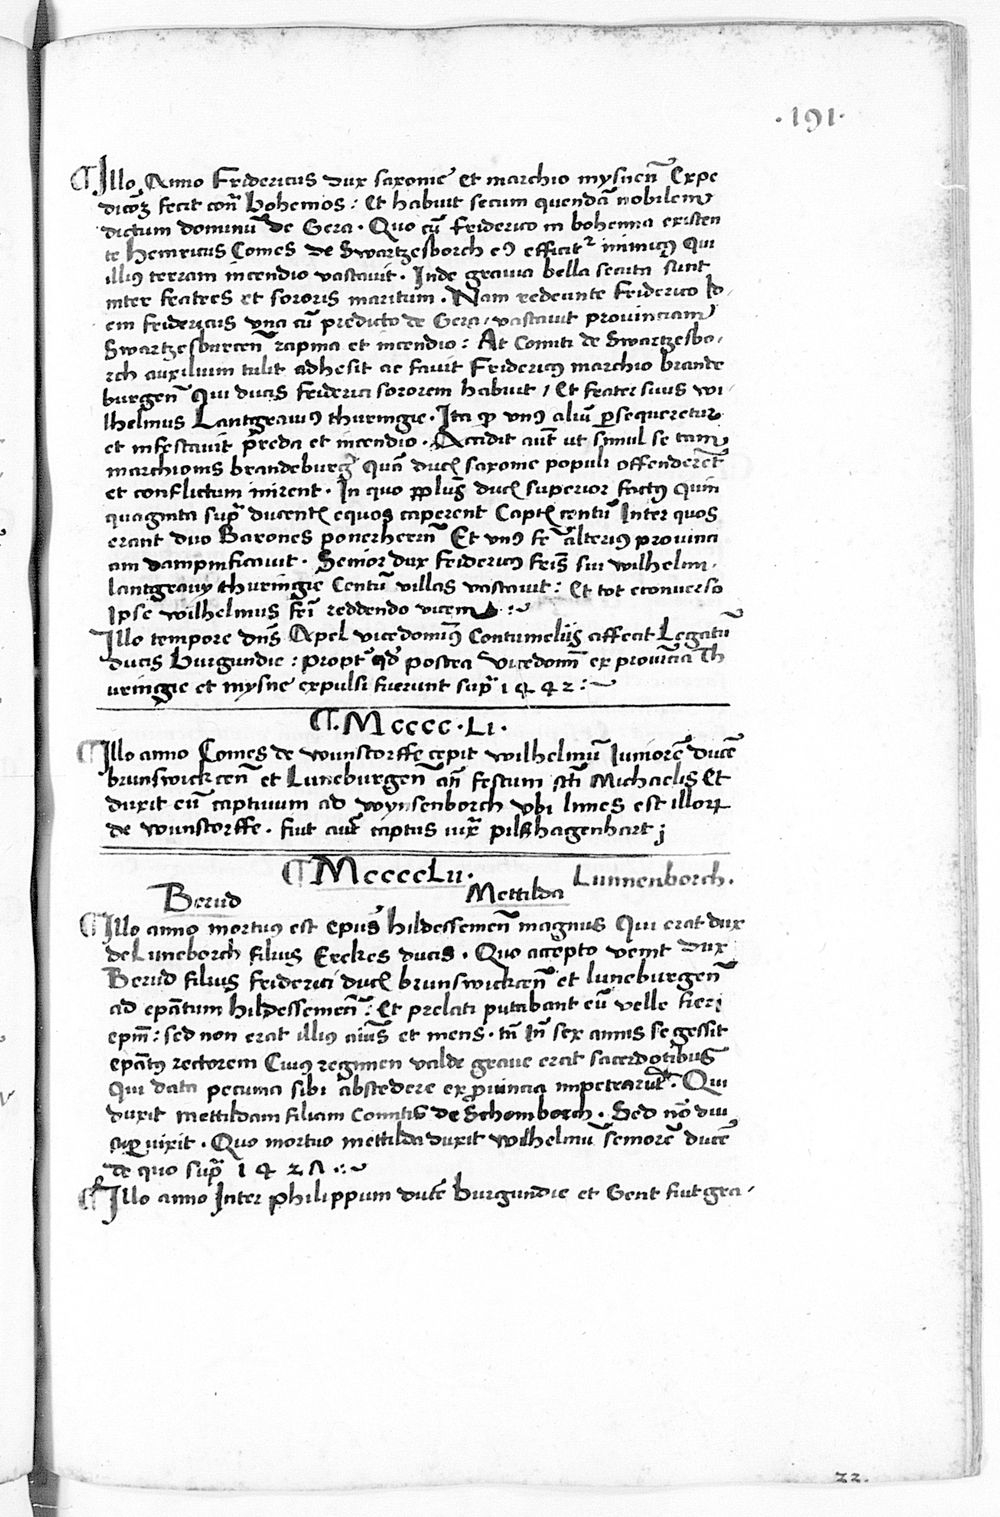 .191.
¶Illo Anno Fridericus dux saxonie et marchio mysnen̄ Expe
dicōꝫ fecit con̄ bohemos : Et habuit secum quendā nobilem
dictum dominū de Gera . Quo cū friderico in bohemia existen
te heinricus Comes de Swartzesborch eꝰ efficit᷑ inimicꝰ qui
illiꝰ terram incendio vastauit . Inde grauia bella secuta sunt
inter fratres et sororis maritum . Nam redeunte friderico Id
em fridericus vna cū predicto de Gera vastauit prouinciam
Swartzesburcen̄ rapina et incendio : At Comiti de Swartzesbo
rch auxilium tulit adhesit ac fauit Fridericꝰ marchio brande
burgen̄ Qui ducis friderici sororem habuit / Et frater suus wi
lhelmus Lantgrauiꝰ thuringie . Ita ꝙ vnꝰ aliū ꝑsequeretur
et infestauit p̄reda et incendio . Accidit aūt ut simul se tam
marchionis brandeburḡ quā duc̄ saxonie populi offenderēt
et conflictum inirent . In quo duc̄ superior factꝰ quin
quaginta sup̄ ducent̄ equos caperent Capt̄ centū Inter quos
erant duo Barones Et vnꝰ fr̄ alteriꝰ prouinci
am dampnificauit . Senior dux fridericus fr̄is sui wilhelm
lantgrauy thuringie Centū villas vastauit : Et tot econuerso
Ipse wilhelmus fr̄i reddendo vicem
Illo tempore dn̄s Apel vicedominꝰ Contumeliis affecit Legatū
ducis burgundie : propt̄ qd̄ postea vicedomn̄ ex prouincia Th
uringie et mysne expulsi fuerunt sup̄ 1442 :~
¶.Mcccc.Li.
¶Illo anno Comes de wunstorffe cepit wilhelmū Iuniorē ducē
brunswickcen̄ et Luneburgen̄ an̄ festum sc̄ti Michaelis Et
duxit eū captiuum ad wynsenborch vbi limes est illoꝝ
de wunstorffe . fuit aūt captus iux̄ pilshagenhart j
¶Mcccclii.
Lunnenborch.
Bernd Mettilda
¶Illo anno mortuꝰ est ep̄us hildessemen̄ magnus Qui erat dux
de Luneborch filius Erekes ducis . Quo accepto venit dux
Bernd filius friderici duc̄ brunswickcen̄ et luneburgen̄
ad ep̄atum hildessemen̄ : Et prelati putabant eū velle fieri
ep̄m : sed non erat illiꝰ aiūs et mens . tn̄ In sex annis se gessit
ep̄atꝰ rectorem Cuiꝰ regimen valde graue erat sacerdotibus
Qui data pecunia sibi abscedere ex ꝓuincia impetrarūt . Qui
duxit mettildam filiam Comitis de Schomborch . Sed nō diu
suꝑuixit . Quo mortuo mettilda duxit wilhelmū seniorē ducē
de quo sup̄ 1427 :~
¶Illo anno Inter philippum ducē burgundie et Gent fuit gra
22.